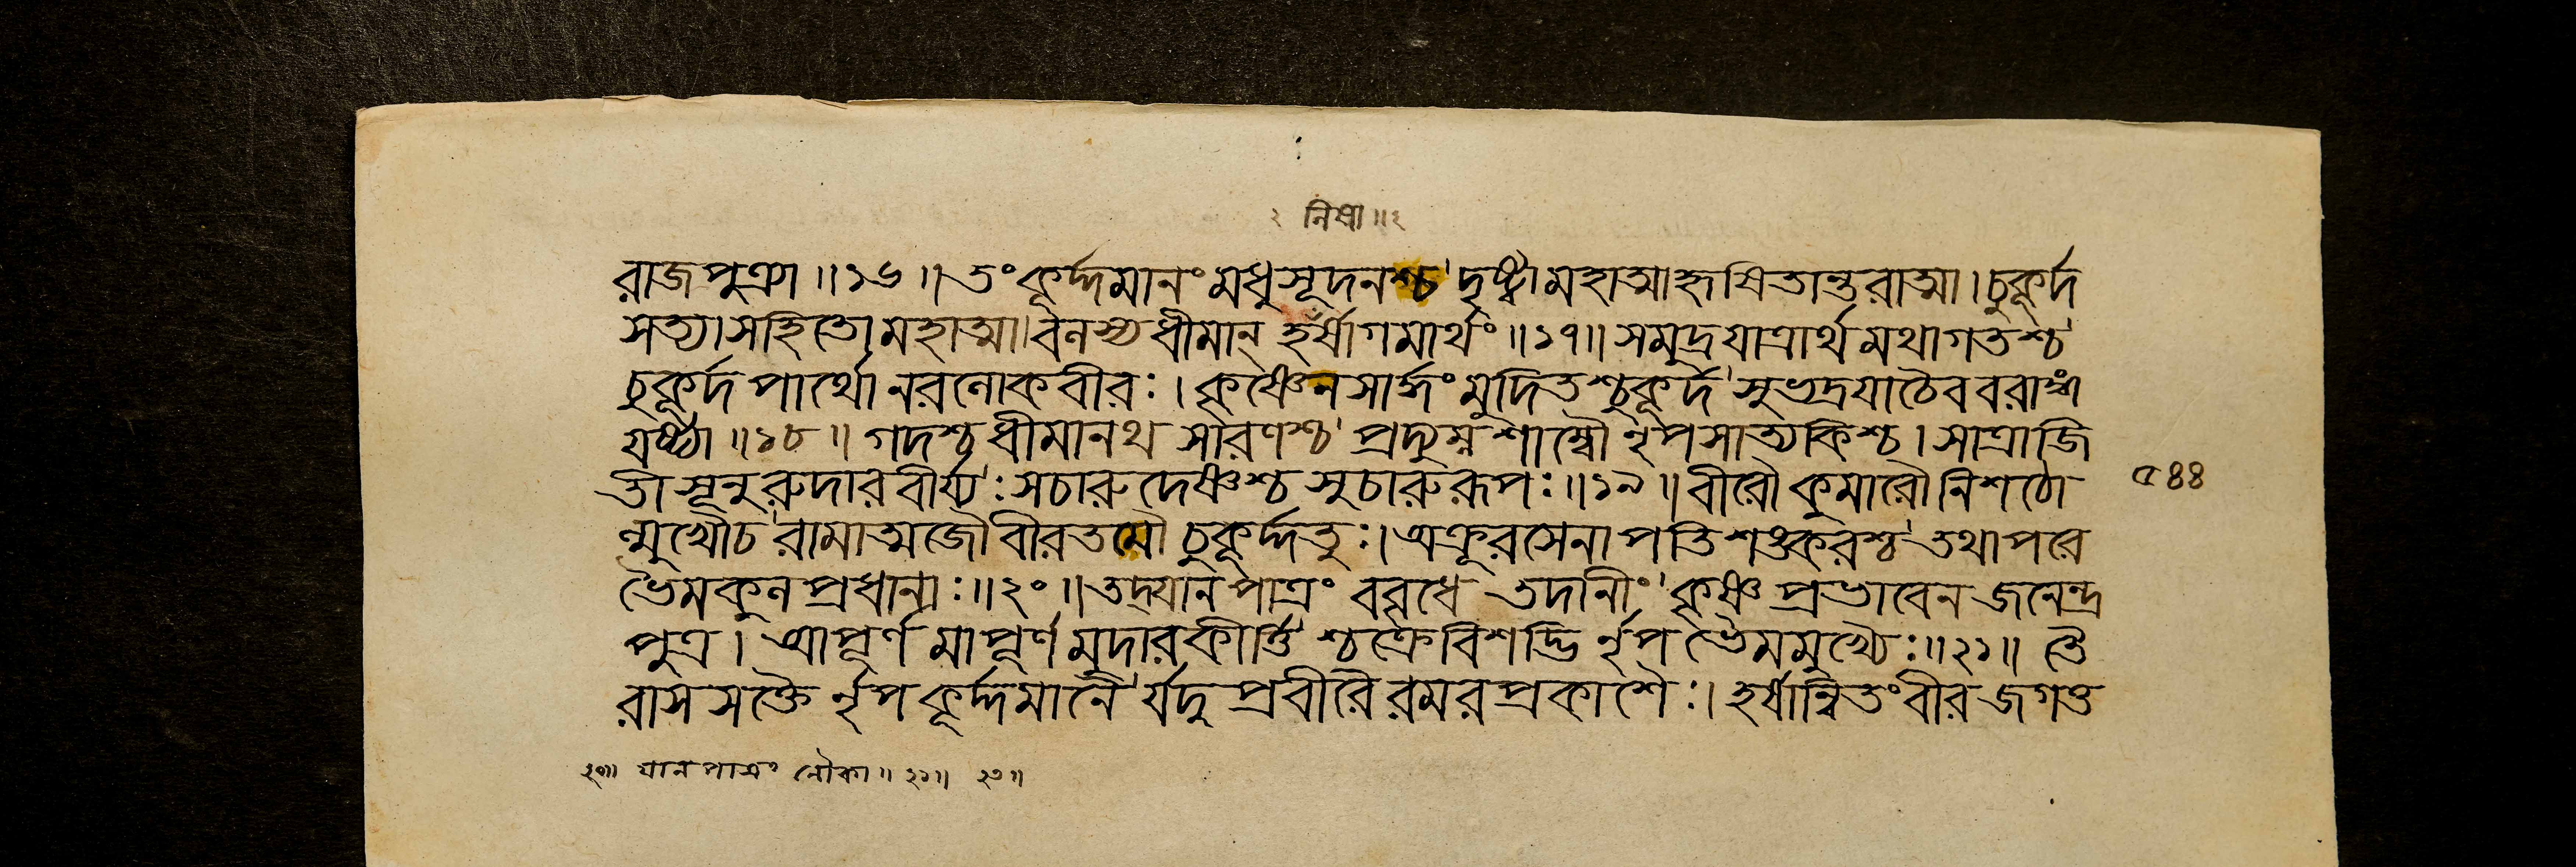 ২ নিষা॥২
রাজপুত্রা॥১৬॥তং কূর্দ্দমানং মধুসূদনশ্চ দৃষ্ট্বা মহাত্মা হৃষিতান্তরাত্মা।চুকূর্দ
সত্যাসহিতো মহাত্মা বলস্য ধীমান্ হর্ষাগমার্থং॥১৭॥সমুদ্রযাত্রার্থমথাগতশ্চ
চুকূর্দ পার্থো নরলোকবীরঃ।কৃষ্ণেন সার্দ্ধং মুদিতশ্চুকূর্দ সুভদ্রয়াচৈব বরাঙ্গ
যষ্ঠ্যা॥১৮॥গদশ্চ ধীমানথ সারণশ্চ প্রদ্যুম্নশাম্বৌ নৃপ সাত্যকিশ্চ।সাত্রাজি
তীসূনুরুদারবীর্য্যঃ সচারুদেষ্ণশ্চ সুচারুরূপঃ॥১৯॥বীরৌ কুমারৌ নিশঠো
ল্মুখৌচ রামাত্মজৌ বীরতমৌ চুকূর্দ্দতুঃ।অক্রূরসেনাপতিশঙ্করশ্চ তথাপরে
ভৈমকুলপ্রধানাঃ॥২০॥তদ্যানপাত্রং ববৃধে তদানীং কৃষ্ণপ্রভাবেন জনেন্দ্র
পুত্র।আপূর্ণমাপূর্ণমুদারকীর্ত্তি শ্চক্রেবিশদ্ভি র্নৃপ ভৈমমুখ্যৈঃ॥২১॥তৈ
রাসসক্তৈ র্নৃপ কূর্দ্দমানৈ র্যদুপ্রবীরৈরমরপ্রকাশৈঃ।হর্ষান্বিতং বীর জগত্ত
৫৪৪
২০॥ যানপাত্রং নৌকা॥২১॥ ২৩॥